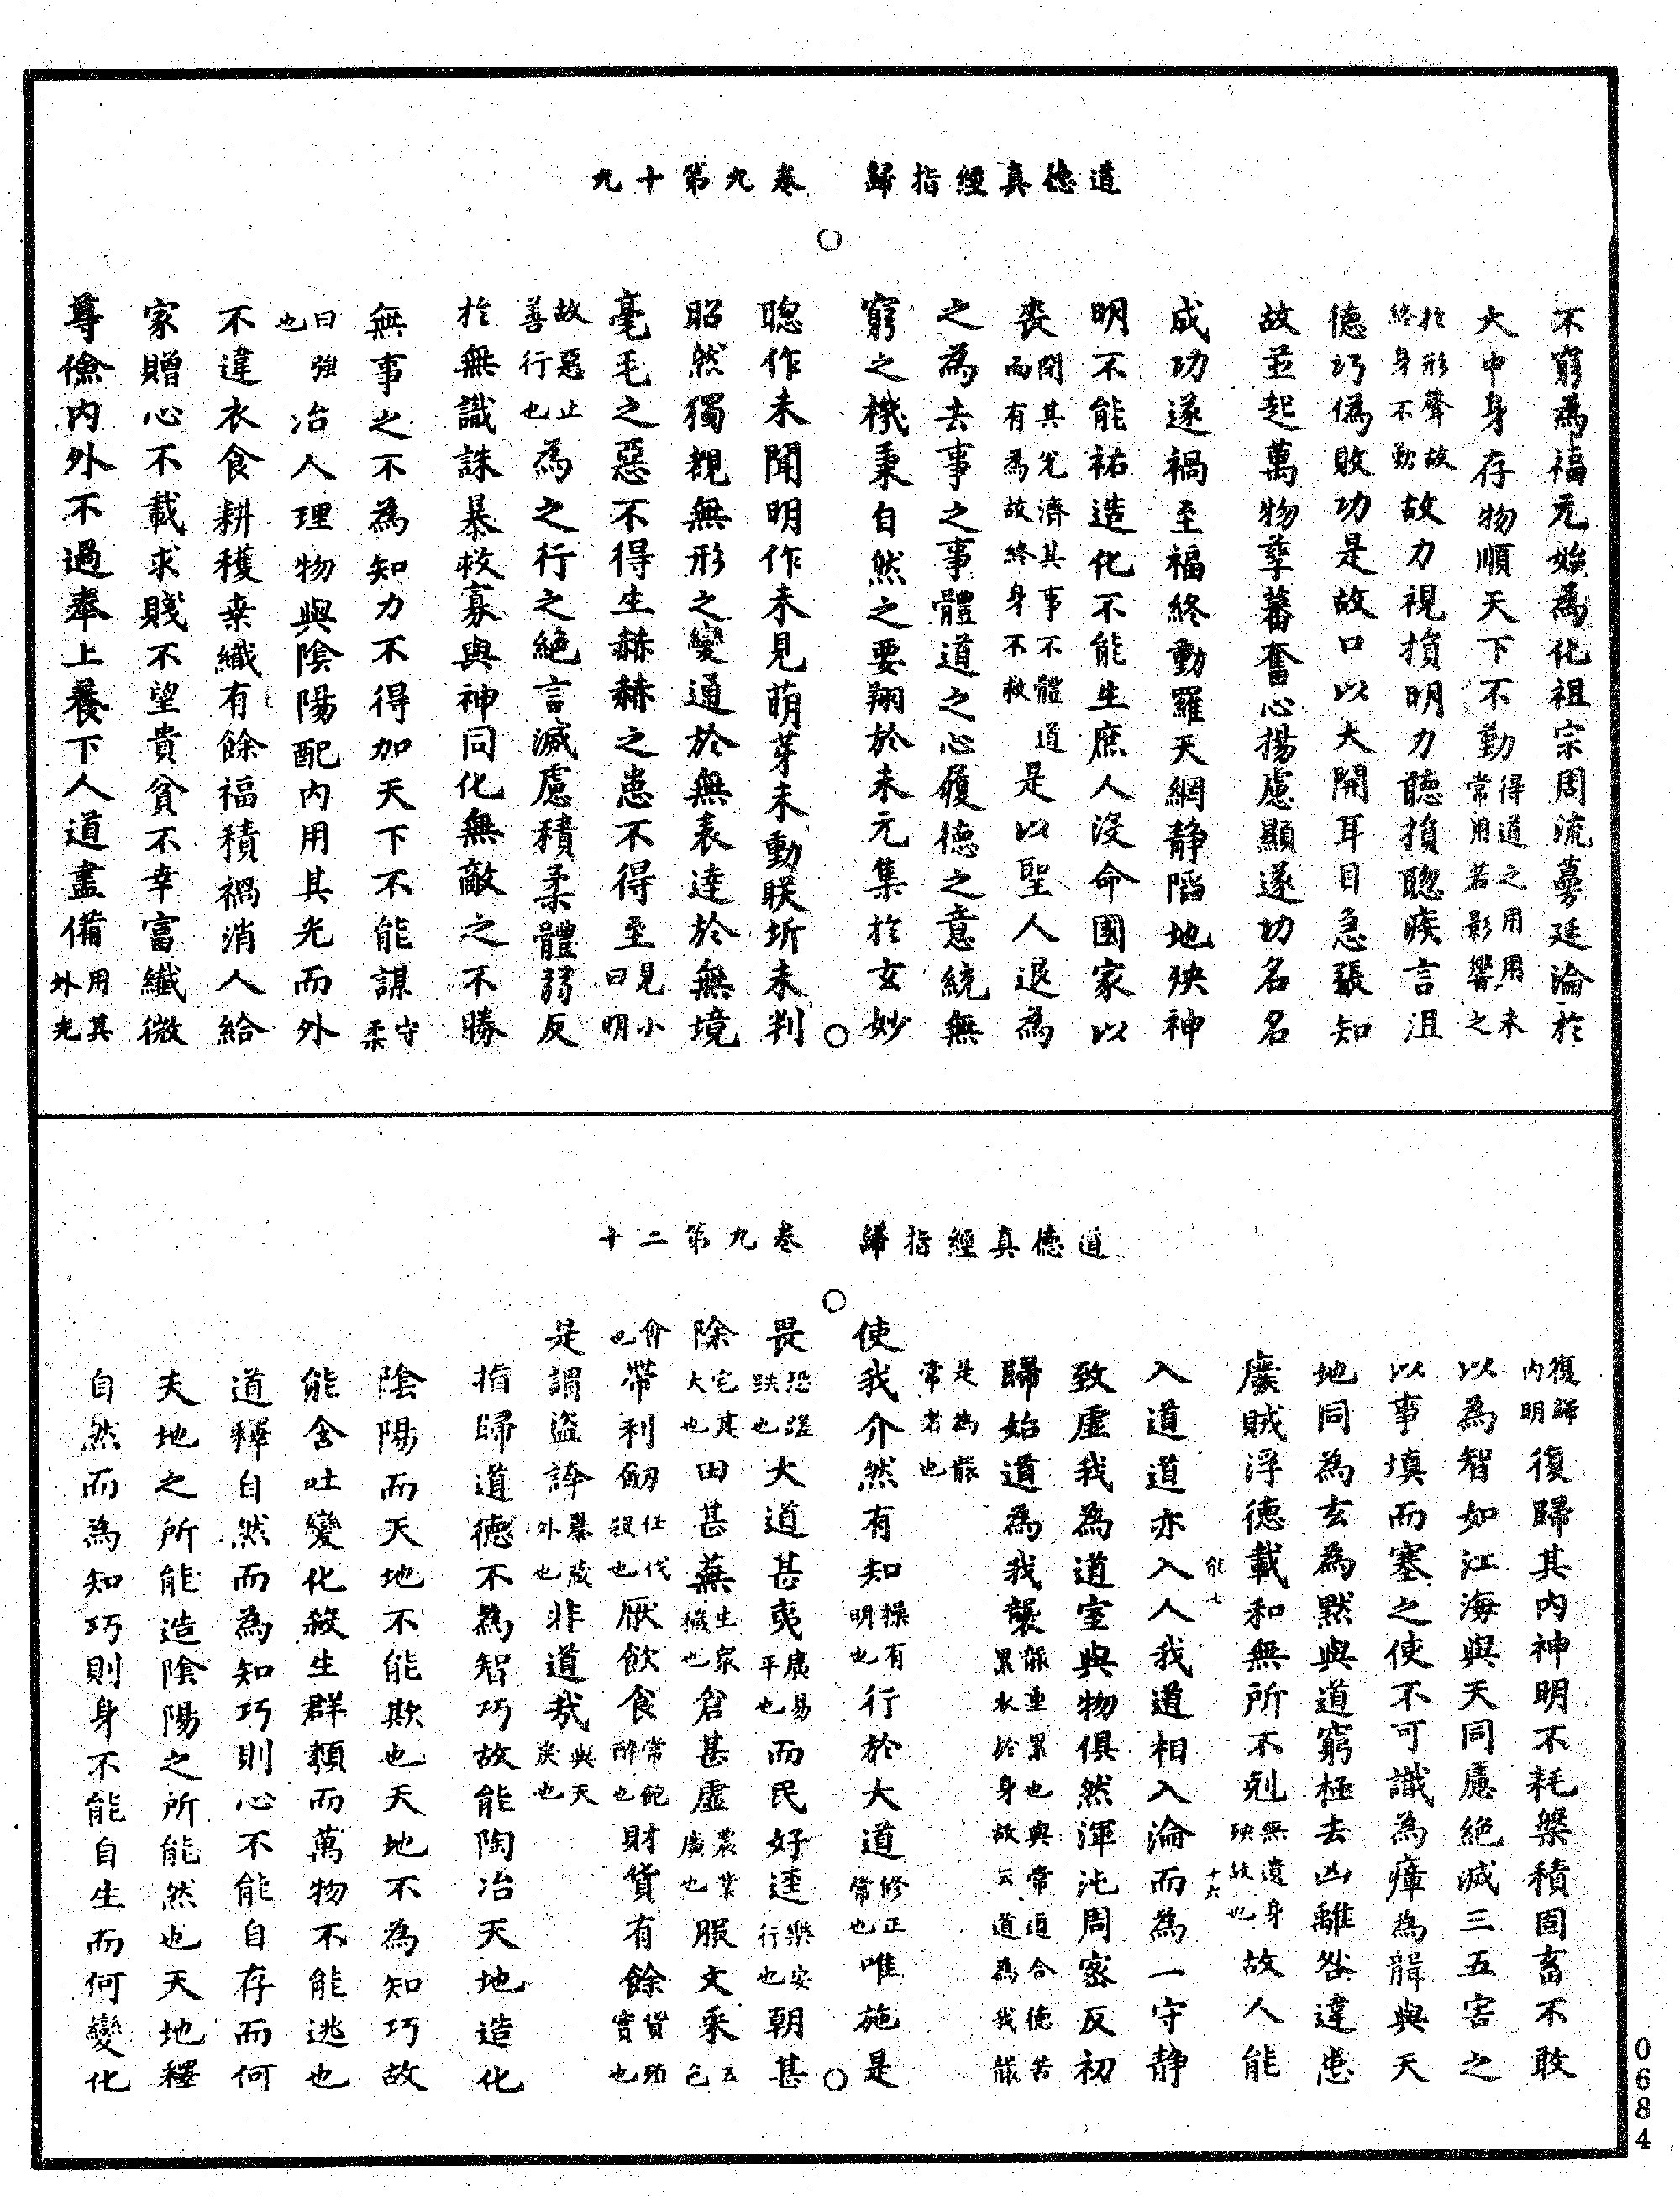 道德真經指歸　卷九第十九
不窮為福元始為化祖宗周流蔓延淪於
大中身存物順天下不勤得道之用用未常用若影響之
於形聲故終身不勤故力視損明力聽損聰疾言沮
德巧偽敗功是故口以大開耳目急張知
故並起萬物孽蕃奮心揚慮顯遂功名名
成功遂禍至福終動羅天網静陷地殃神
明不能祐造化不能生庶人沒命國家以
喪開其兌濟其事不體道而有為故終身不救是以聖人退為
之為去事之事體道之心履德之意統無
窮之機秉自然之要翔於未元集於玄妙
聰作未聞明作未見萌芽未動朕圻未判
昭然獨覩無形之變通於無表達於無境
毫毛之惡不得生赫赫之患不得至見小曰明
故惡止善行也為之行之絶言滅慮積柔體弱反
於無識誅暴救寡與神同化無敵之不勝
無事之不為知力不得加天下不能謀守柔
曰強也冶人理物與陰陽配内用其光而外
不違衣食耕穫桒織有餘福積禍消人給
家贍心不載求賤不望貴貧不幸富纖微
尊儉内外不過奉上養下人道盡備用其外光
道德真經指歸　卷九第二十
復歸内明復歸其内神明不耗槃積固畜不敢
以為智如江海與天同慮絶滅三五害之
以事填而塞之使不可識為瘴為聾與天
地同為玄為默與道窮極去凶離咎違患
廢賊浮德載和無所不剋無遺身殃故也故人能
能七　十六
入道道亦入人我道相入淪而為一守静
致虛我為道室與物俱然渾沌周密反初
歸始道為我襲
是為襲常者也
使我介然有知操有明也行於大道修正常也唯施是
畏大道甚夷廣易平也而民好逕樂安行也朝甚
除宅其大也田甚蕪生家穢也倉甚虛農業廣也服文采五色
會也帶利劒仕伐殺也厭飲食常飽醉也財貨有餘貨賄寳也
是謂盜誇暴藏外也非道哉與天炭也
指歸道德不為智巧故能陶冶天地造化
陰陽而天地不能欺也天地不為知巧故
能含吐變化殺生群類而萬物不能逃也
道釋自然而為知巧則心不能自存而何
夫地之所能造陰陽之所能然也天地釋
自然而為知巧則身不能自生而何變化
0684